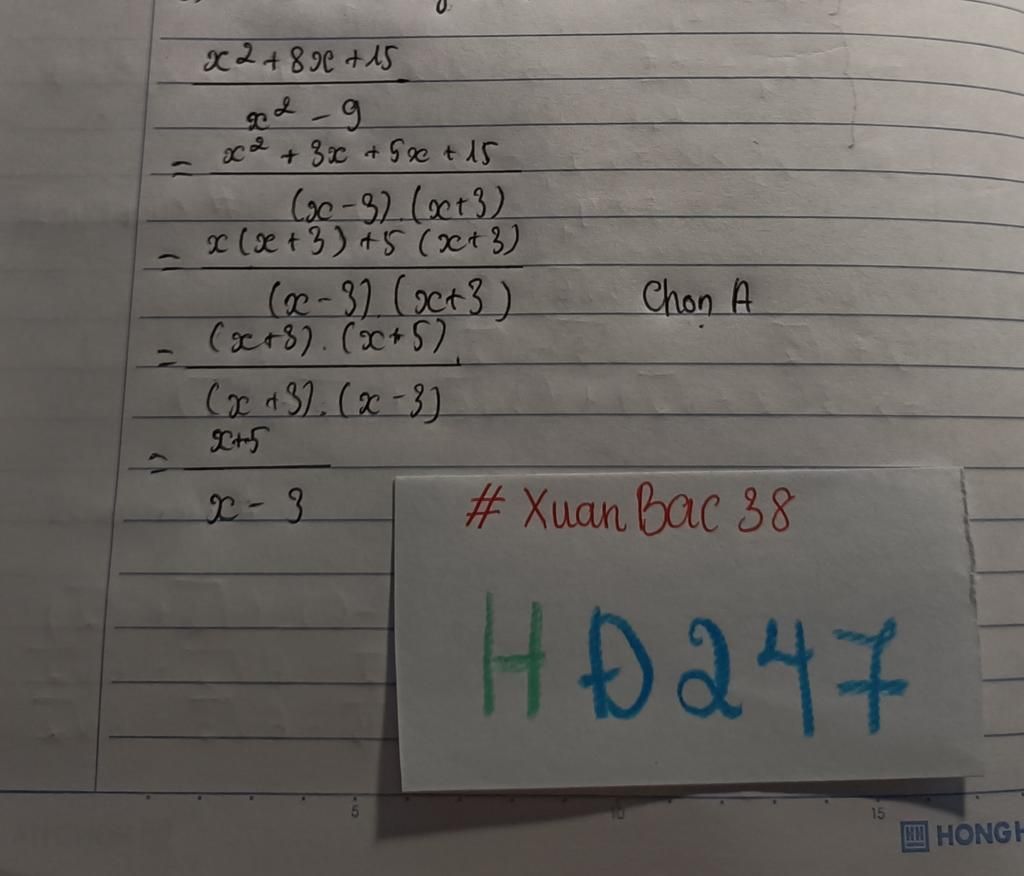 x² + 8x + 15
x² - 9
= x² + 3x + 5x + 15
(x - 3).(x + 3)
= x(x + 3) + 5(x + 3)
(x - 3).(x + 3)
Chọn A
= (x + 3).(x + 5)
(x + 3).(x - 3)
= x + 5
x - 3
# XuanBac 38
HĐ247
5 10 15
HONG H